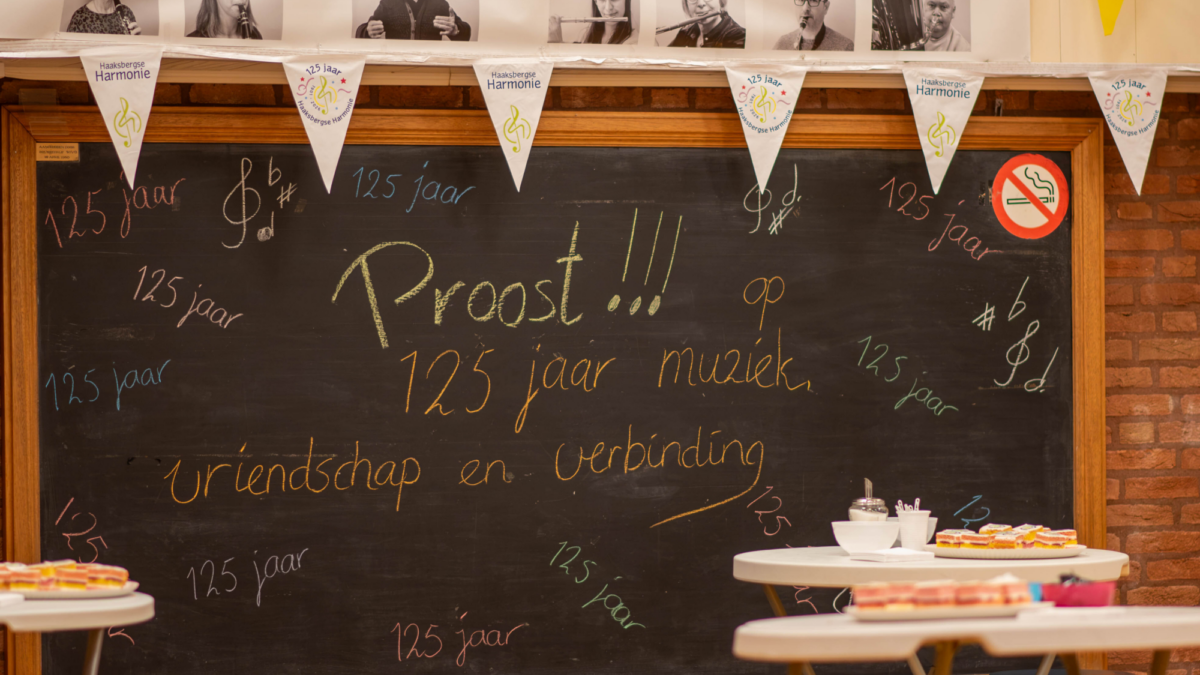 Haaksbergse
Harmonie
125 jaar
Haaksbergse Harmonie
Haaksbergse
Harmonie
125 jaar
Haaksbergse Harmonie
Haaksbergse
Harmonie
125 jaar
Haaksbergse Harmonie
125 jaar
125 jaar
125 jaar
125 jaar
Proost!!!
op
125 jaar muziek,
vriendschap en verbinding
125 jaar
125 jaar
125
125
12
125 jaar
125 jaar
125 jaar